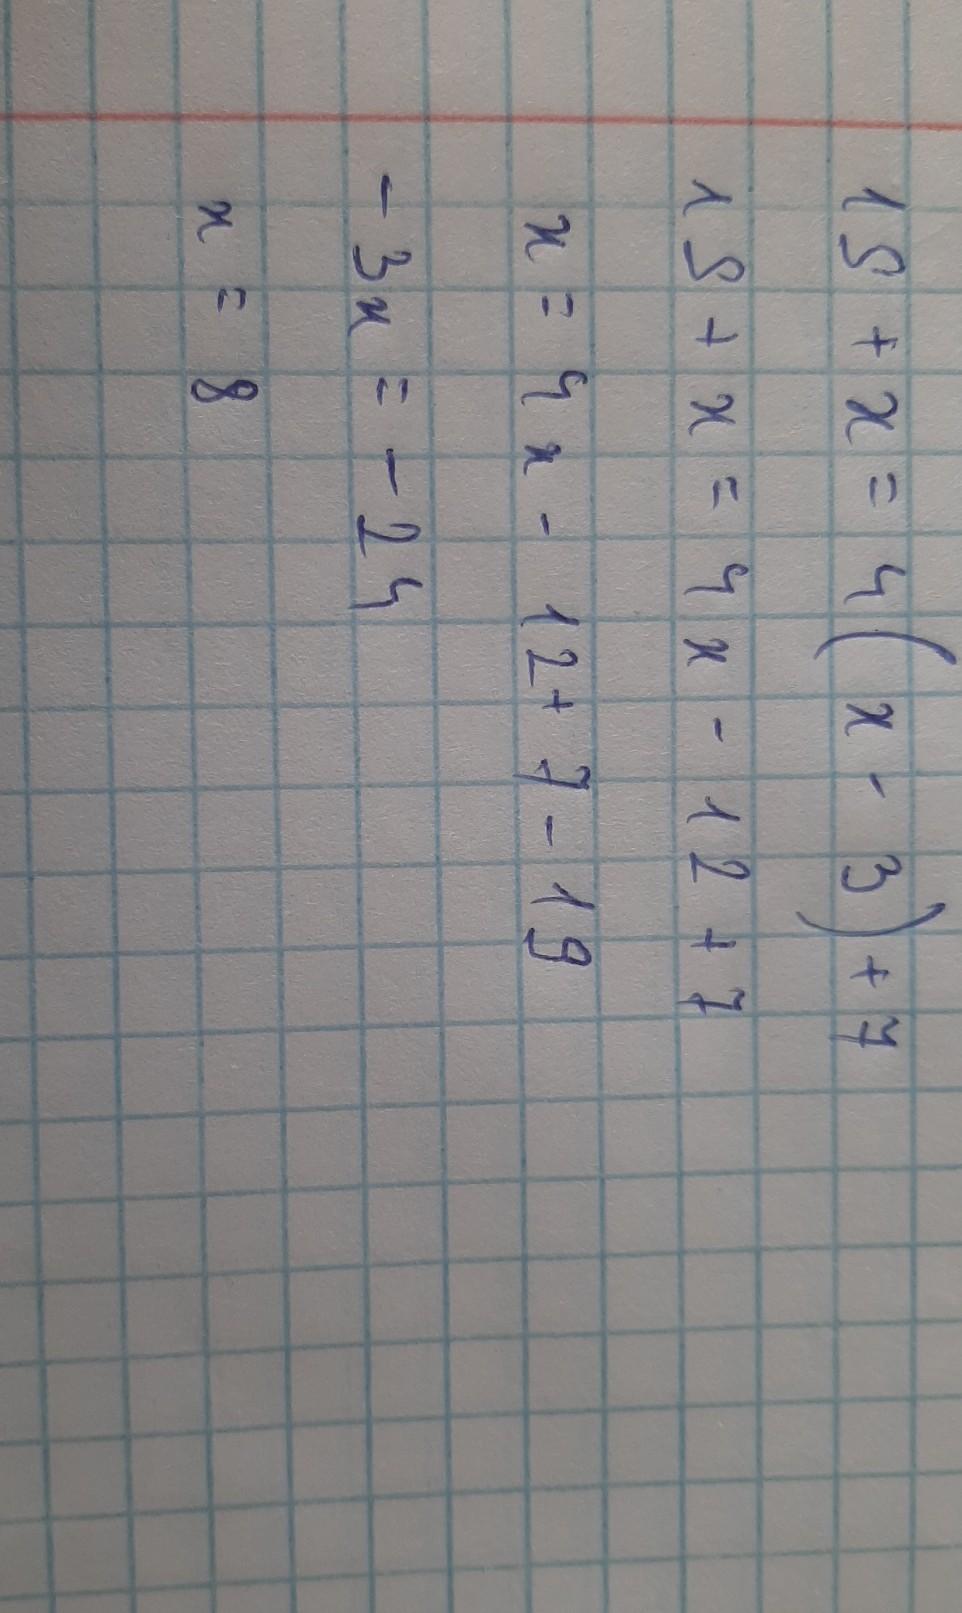 19 + x = 4(x - 3) + 7
19 + x = 4x - 12 + 7
x = 4x - 12 + 7 - 19
- 3x = - 24
x = 8